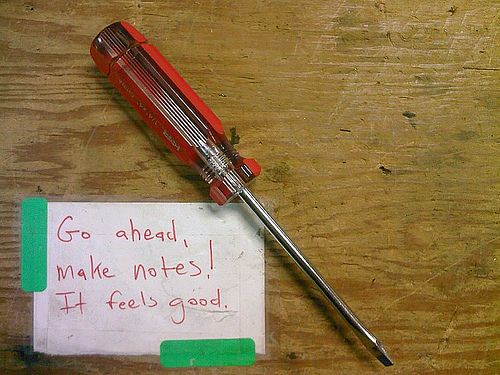 Go ahead,
make notes!
It feels good.